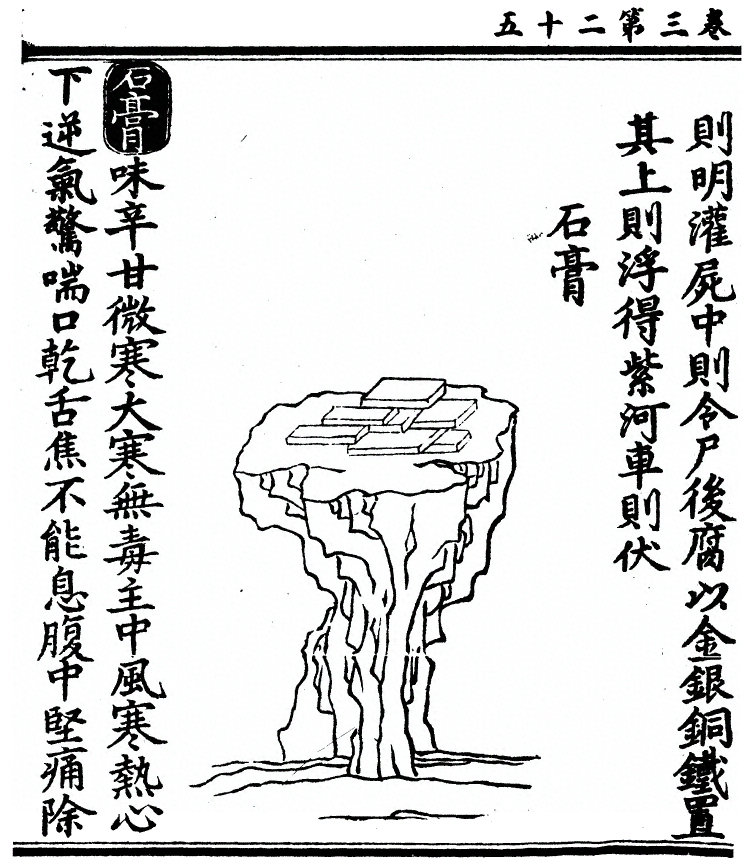 卷三第二十五
則明灌屍中則令尸後腐以金銀銅鐵置
其上則浮得紫河車則伏
石膏
石膏味辛甘微寒大寒無毒主中風寒熱心
下逆氣驚喘口乾舌焦不能息腹中堅痛除